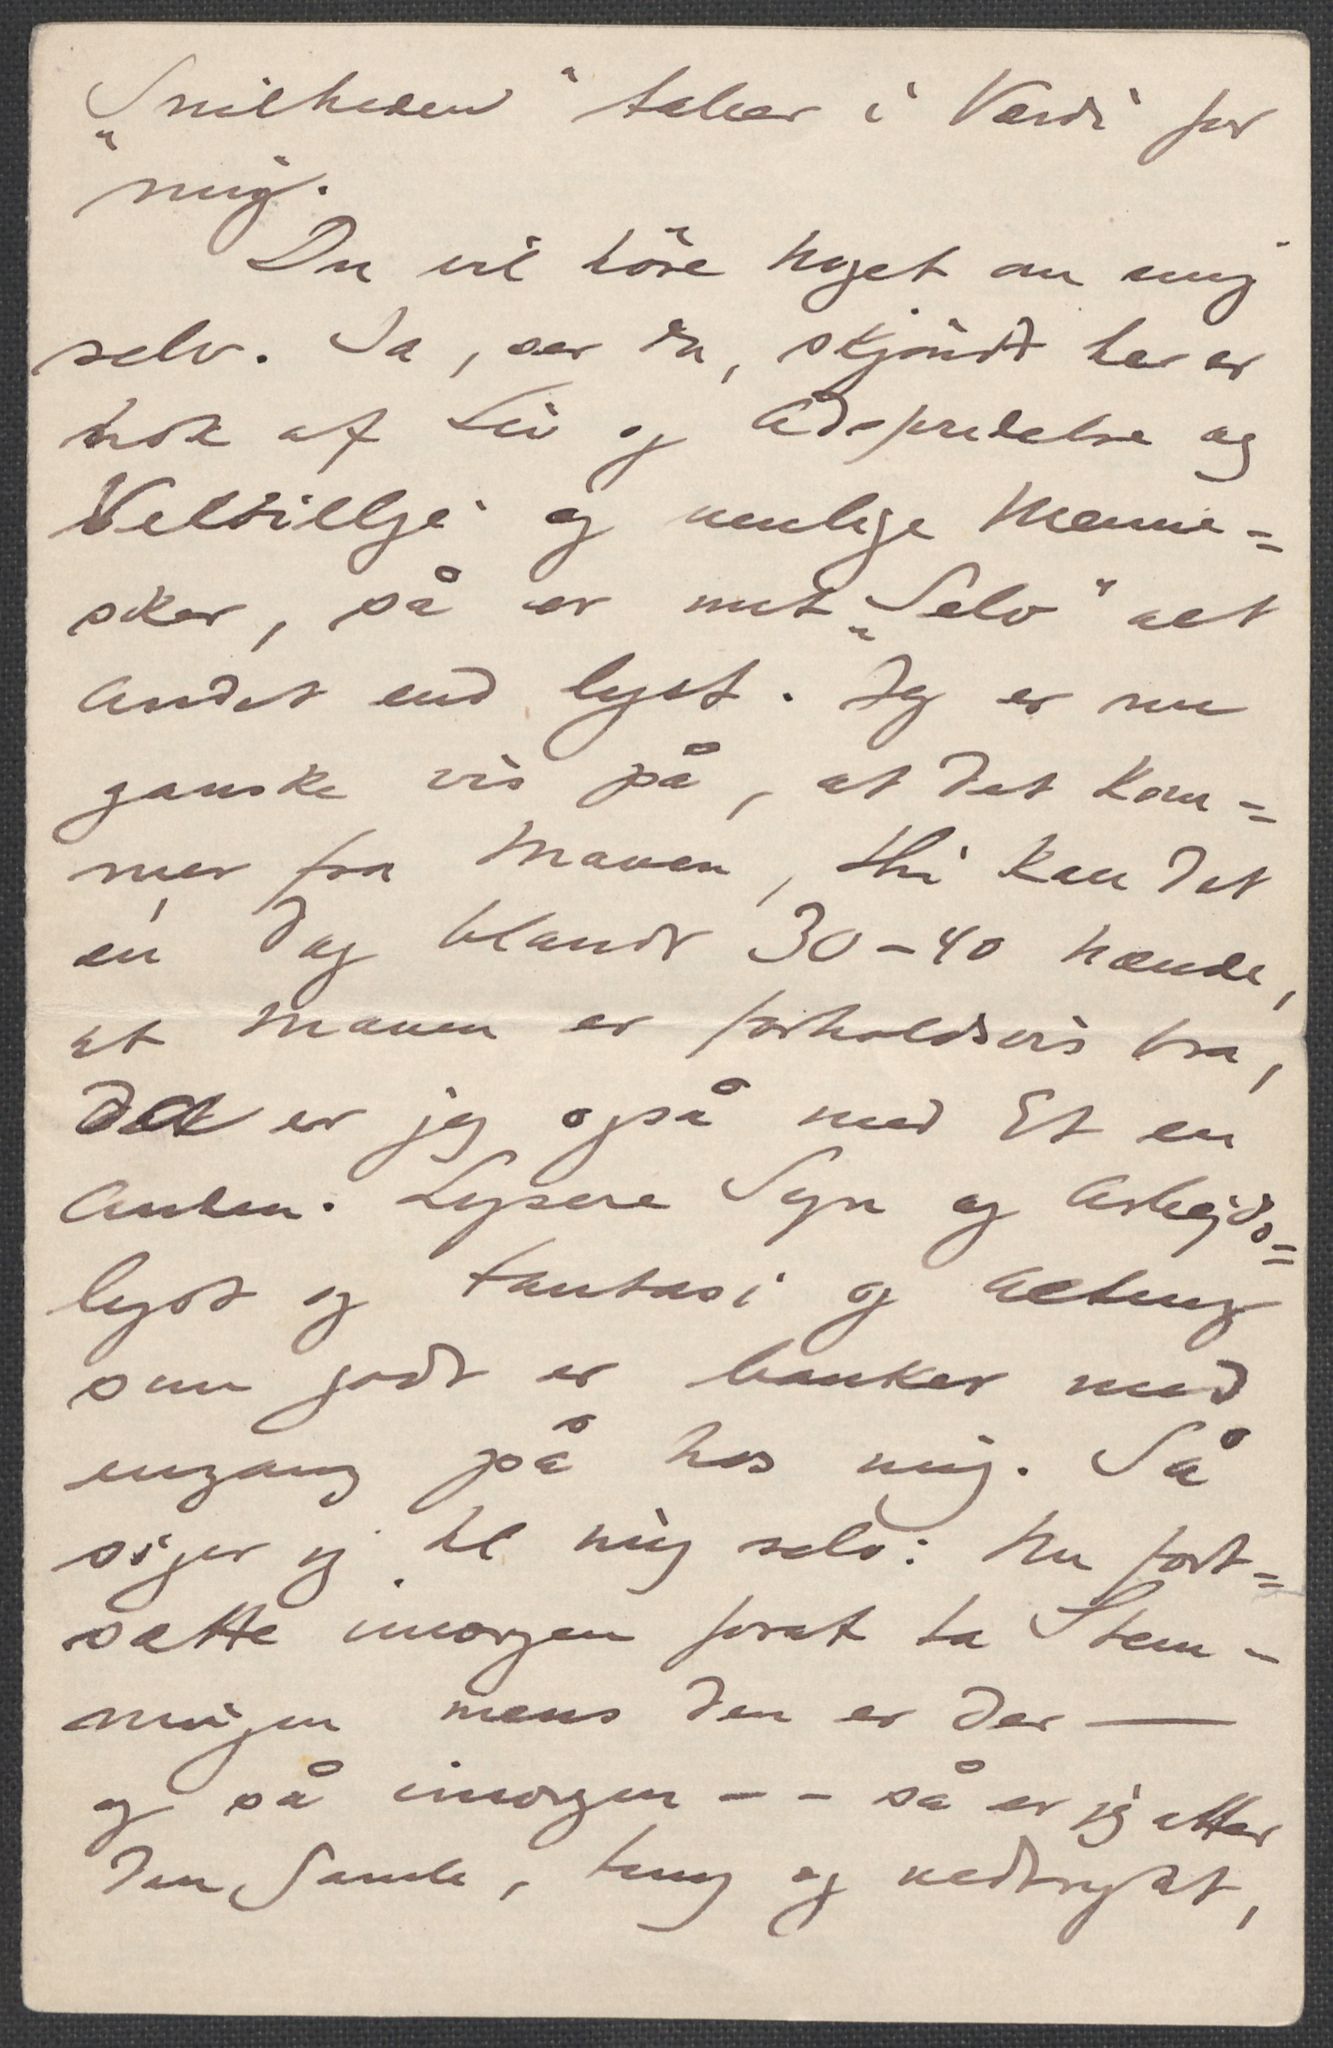 „Snilheden" taber i Værdi for
mig.
Du vil höre noget om mig
selv. Ja, ser du, skjöndt her er
nok af Liv og Adspredelse og
Velvillje og venlige Menne=
sker, så er mit „Selv" alt
andet end lyst. Jeg er nu
ganske vis på, at det kom=
mer fra Maven, thi kan det
én Dag blandt 30–40 hænde,
at Maven er forholdsvis bra,
da er jeg også med Et en
Anden. Lysere Syn og Arbejds=
lyst og Fantasi og Alting
som godt er banker med
engang på hos mig. Så
siger jeg til mig selv: Nu fort=
sætte imorgen forat ta Stem–
ningen mens den er der —
og så imorgen – – så er jeg atter
den Samle, tung og nedtrykt,